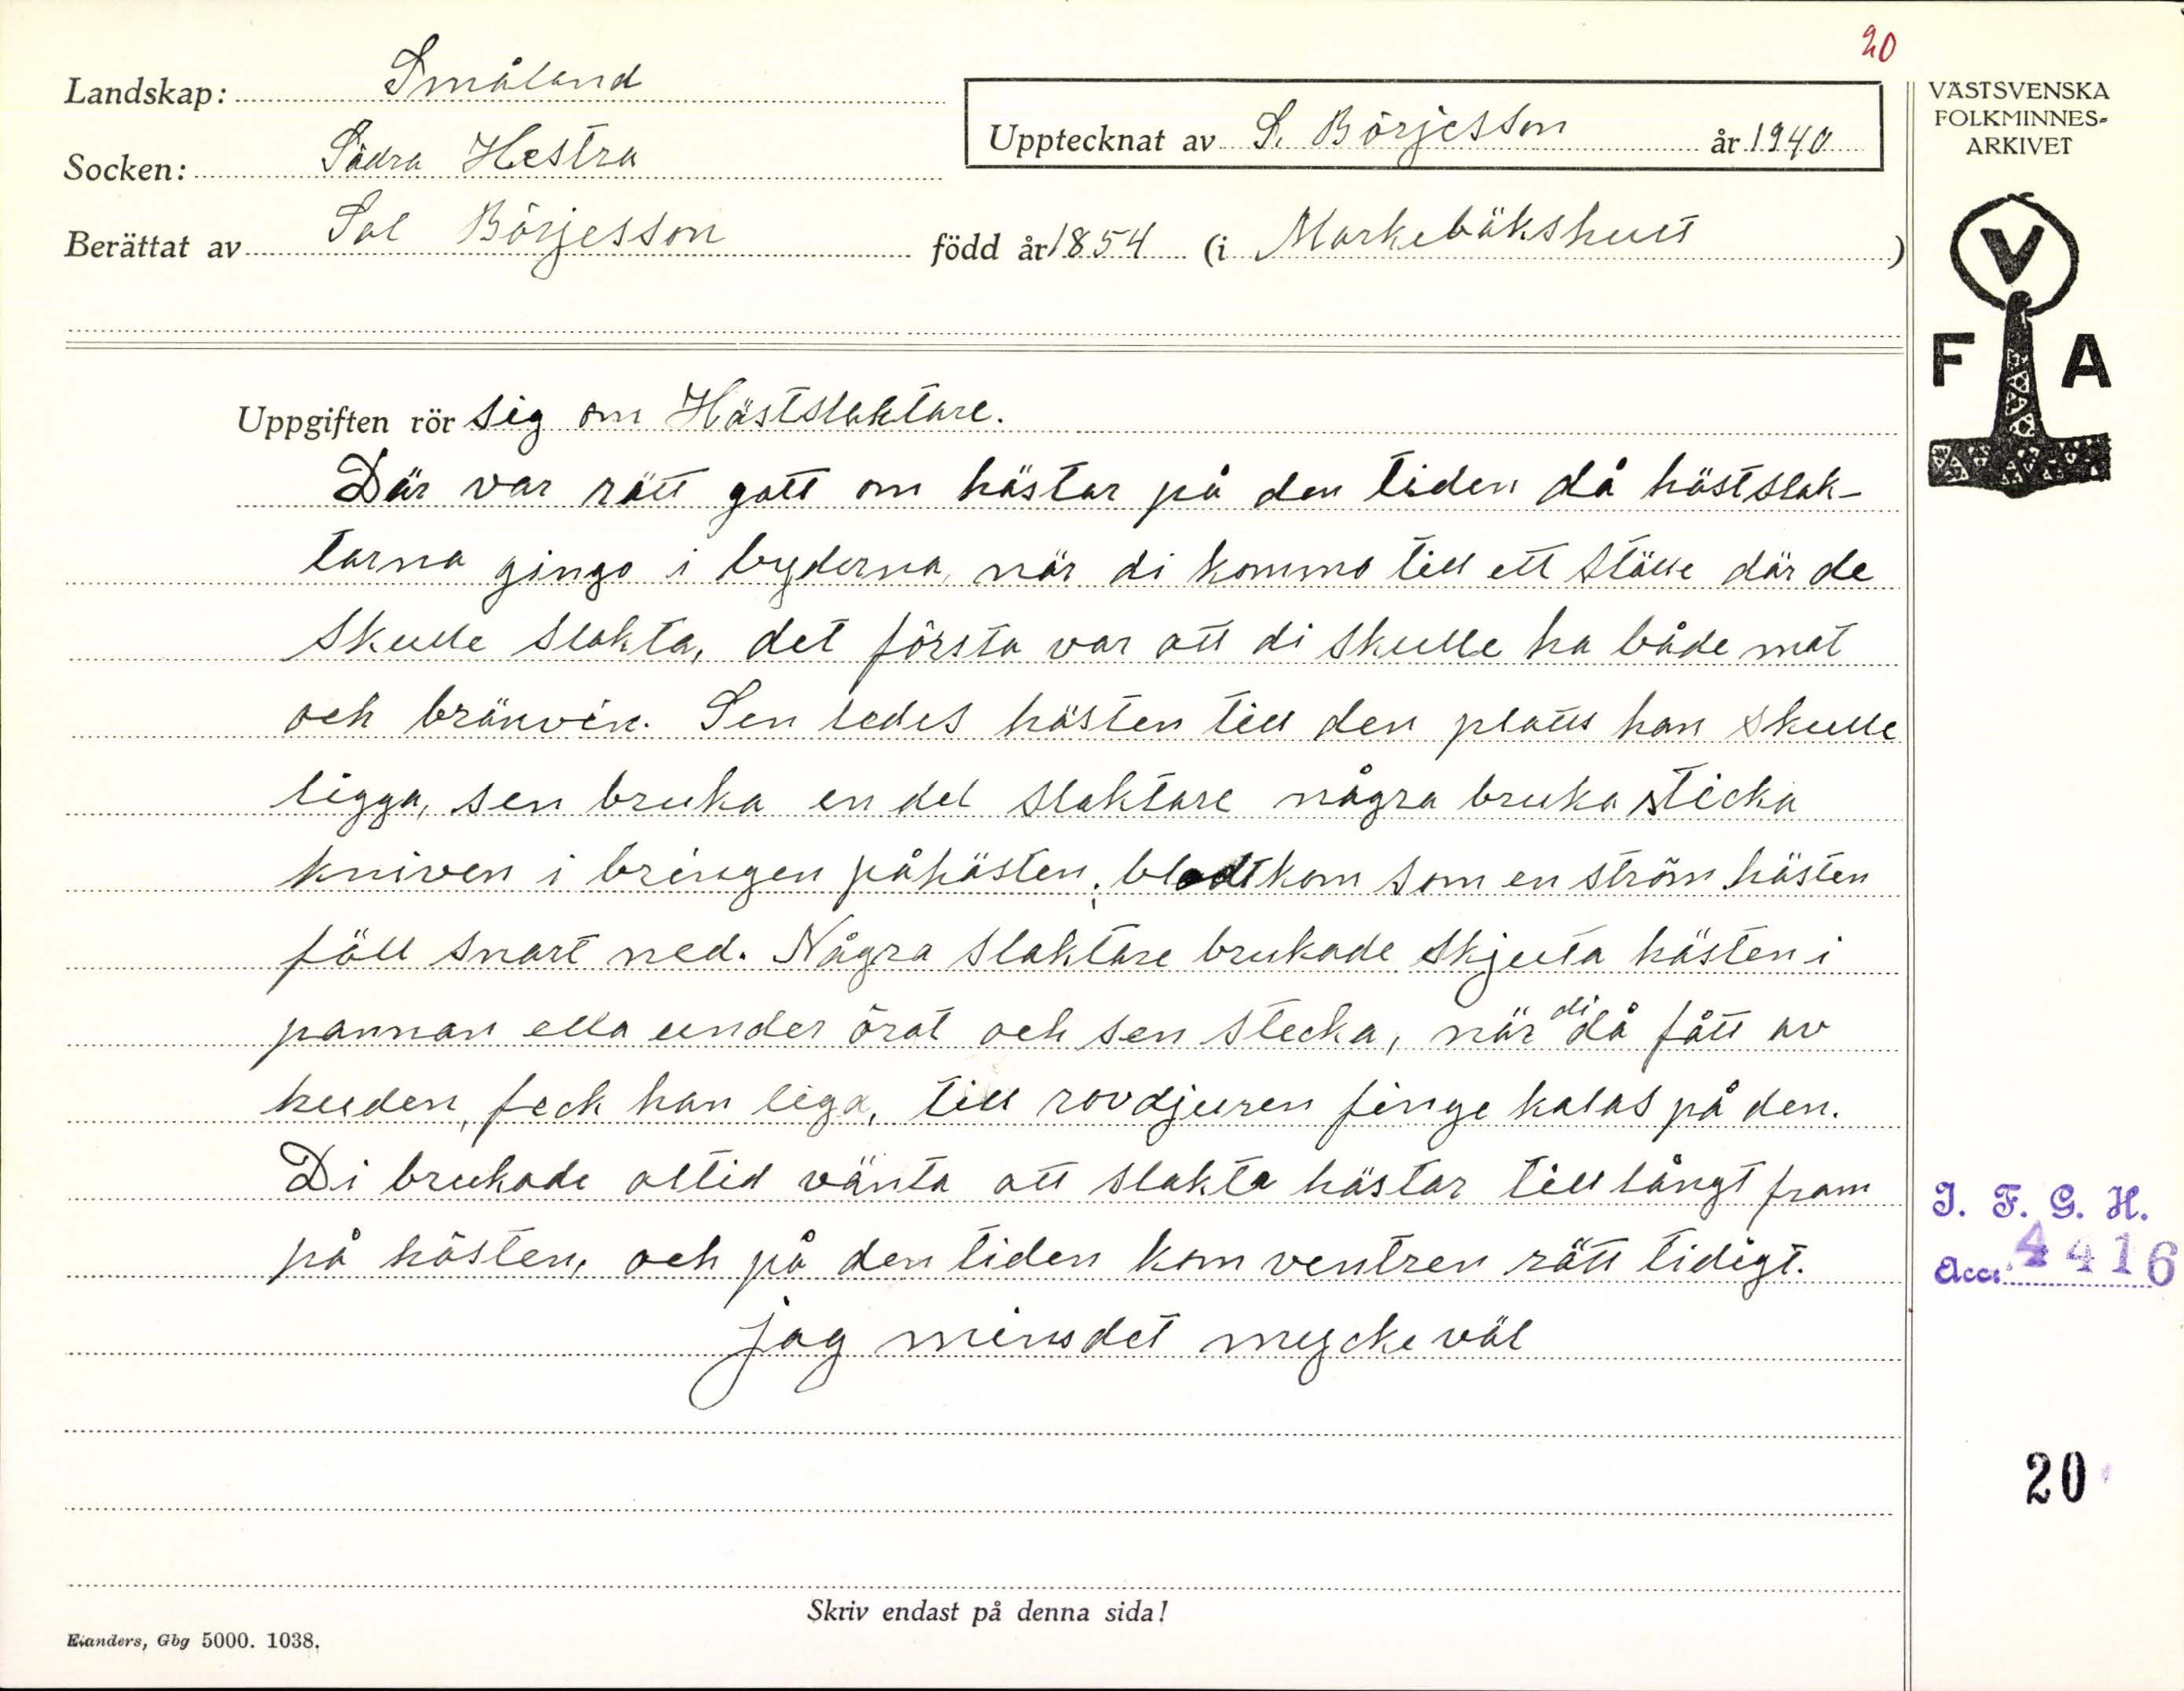 20
Landskap: Småland
Socken: Södra Hestra
Upptecknat av S. Börjesson år 1940
Berättat av Sal Börjesson född år 1854 (i Markebäkshult)
VÄSTSVENSKA
FOLKMINNES-
ARKIVET
V
F A
Uppgiften rör sig om Hästslaktare.
Där var rätt gott om hästar på den tiden då hästslak-
tarna gingo i byderna, när di kommo till ett ställe där de
skulle slakta, det första var att di skulle ha både mat
och bränvin. Sen ledes hästen till den platts han skulle
ligga, sen bruka en del slaktare några bruka sticka
kniven i bringen på hästen, blodt kom som en ström hästen
föll snart ned. Några slaktare brukade skjuta hästen i
pannan ella under örat och sen stecka, när di då fått av
huden, feck han liga, till rovdjuren finge kalas på den.
Di brukade altid vänta att slakta hästar till långt fram
på hösten, och på den tiden kom ventren rätt tidigt.
jag mins det mycke väl
I. F. G. H.
Acc. 4416
20
Skriv endast på denna sida!
Elanders, Gbg 5000. 1038.